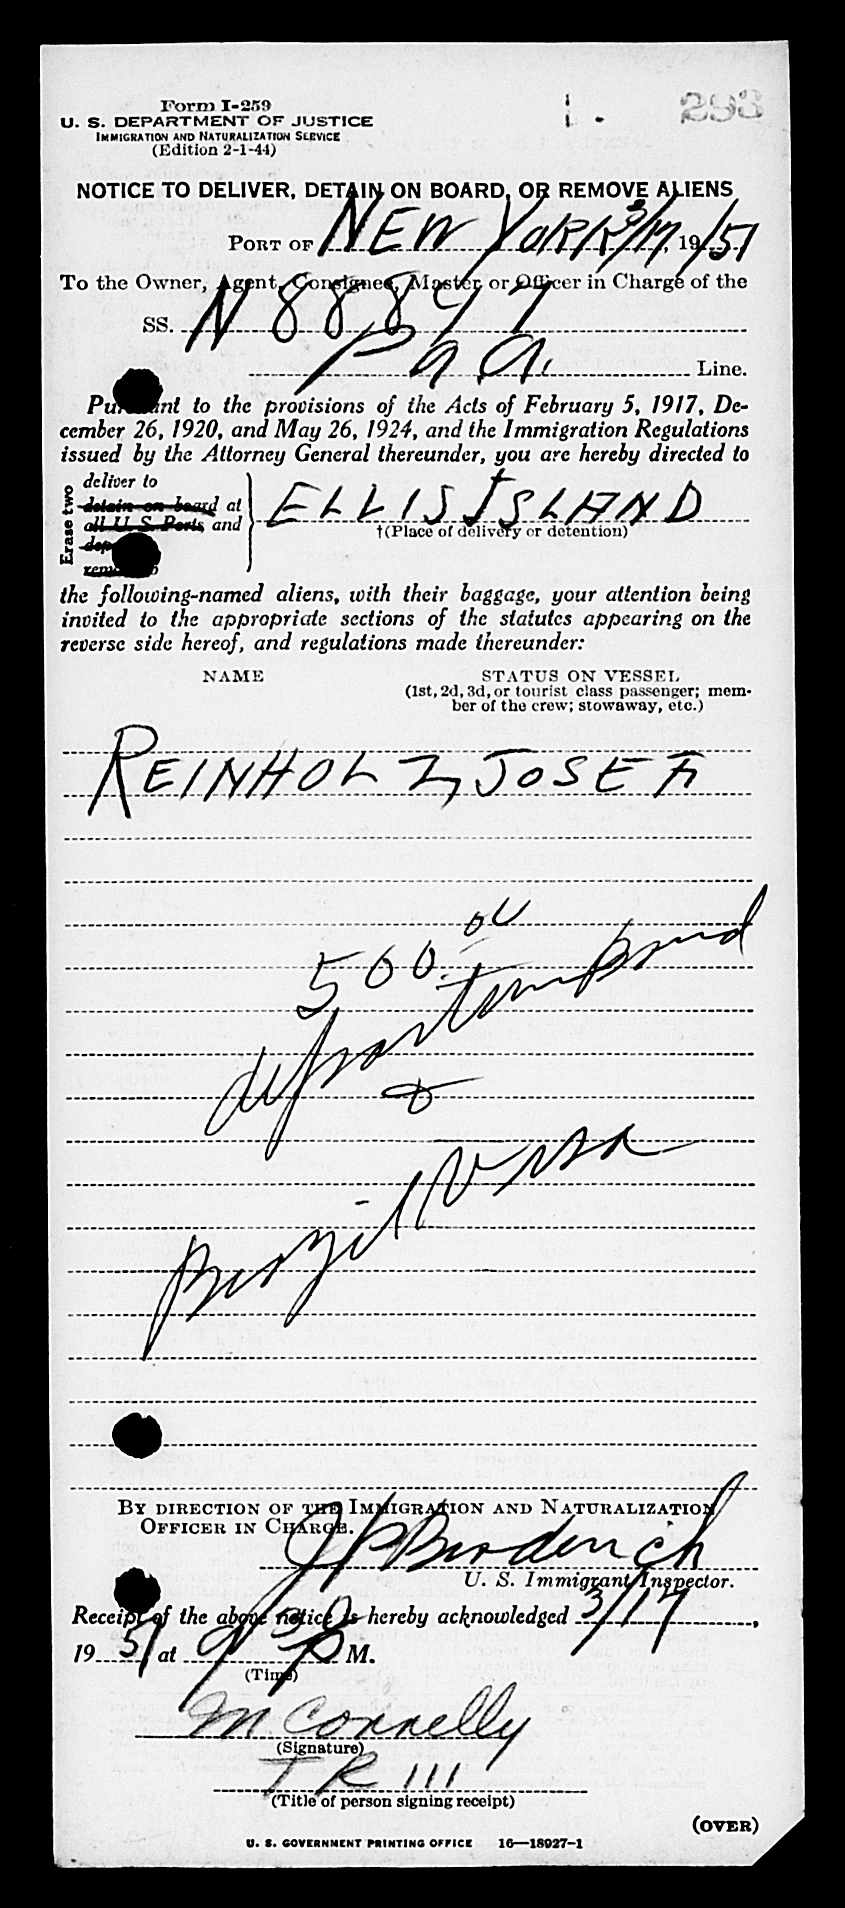 Form I-259
293
U. S. DEPARTMENT OF JUSTICE
IMMIGRATION AND NATURALIZATION SERVICE
(Edition 2-1-44)
NOTICE TO DELIVER, DETAIN ON BOARD, OR REMOVE ALIENS
PORT OF NEW YORK 3/17, 19/51
To the Owner, Agent, Consignee, Master or Officer in Charge of the
SS. N 88847
P.a.a. Line.
Pursuant to the provisions of the Acts of February 5, 1917, De-
cember 26, 1920, and May 26, 1924, and the Immigration Regulations
issued by the Attorney General thereunder, you are hereby directed to
Erase two
deliver to
detain on board at
all U. S. Ports and
ELLIS ISLAND
†(Place of delivery or detention)
the following-named aliens, with their baggage, your attention being
invited to the appropriate sections of the statutes appearing on the
reverse side hereof, and regulations made thereunder:
NAME STATUS ON VESSEL
(1st, 2d, 3d, or tourist class passenger; mem-
ber of the crew; stowaway, etc.)
REINHOLZ, JOSEF
500.00
departure Bond
&
Brazil Visa
BY DIRECTION OF THE IMMIGRATION AND NATURALIZATION
OFFICER IN CHARGE.
J P Broderick
U. S. Immigrant Inspector.
Receipt of the above notice is hereby acknowledged 3/17,
1951 at 9 30 P M.
(Time)
M Connelly
(Signature)
T R III
(Title of person signing receipt)
(OVER)
U. S. GOVERNMENT PRINTING OFFICE 16—18927-1